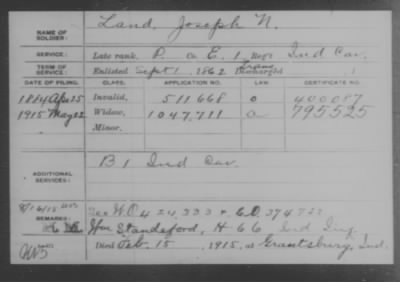 NAME OF SOLDIER: Land, Joseph N.
SERVICE: Late rank, P. Co E, 1 Reg't Ind Cav.
TERM OF SERVICE: Enlisted Sept 1, 1862 Trans. Discharged , 1
DATE OF FILING. CLASS. APPLICATION NO. LAW. CERTIFICATE NO.
1884 Apr 15 Invalid, 511668 400087
1915 May 22 Widow, 1047,711 a 795525
Minor,
ADDITIONAL SERVICES: B 1 Ind Cav.
REMARKS: See W.O. 424333 & C.O. 374
Wm Standeford, H 66 Ind Inf.
Died Feb. 15, 1915, at Grantsburg, Ind.